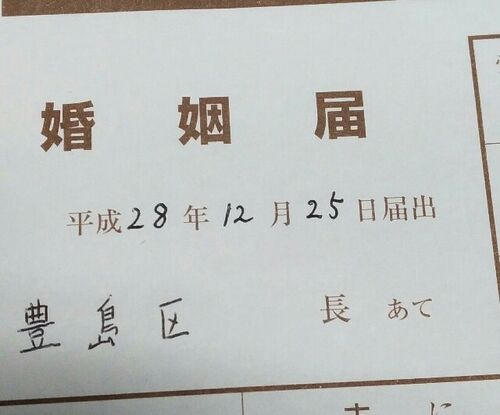 婚姻届
平成28年12月25日届出
豊島区長 あて